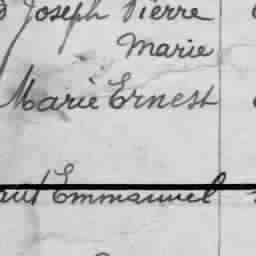 Joseph Pierre
Marie
Marie Ernest
Emmanuel